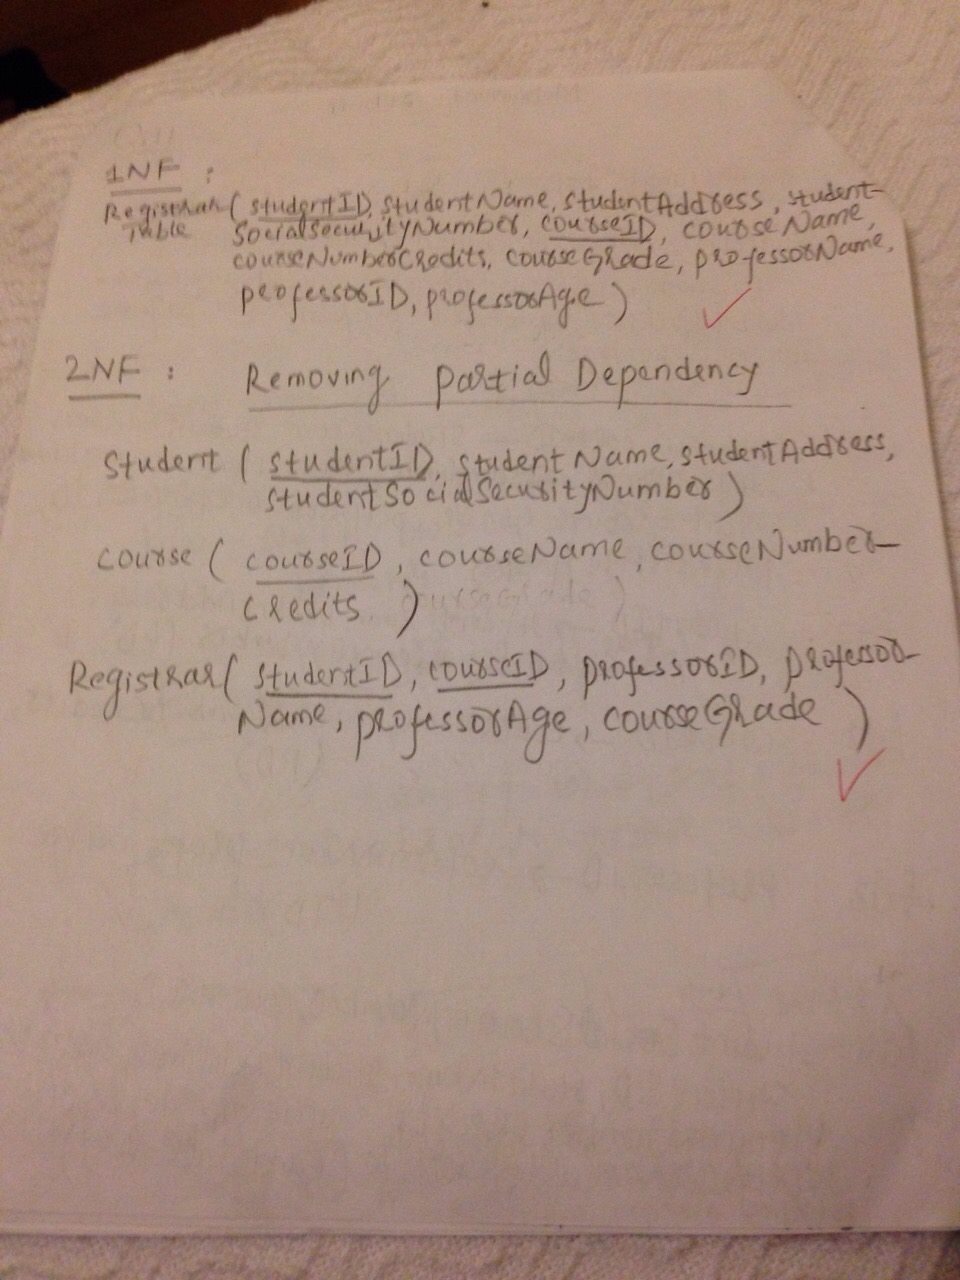 1NF :
Registrar ( studentID, studentName, studentAddress, student-
Table SocialSecurityNumber, courseID, courseName,
courseNumberCredits, courseGrade, professorName,
professorID, professorAge )
2NF : Removing Partial Dependency
Student ( studentID, studentName, studentAddress,
studentSocialSecurityNumber )
course ( courseID, courseName, courseNumber-
Credits )
Registrar ( studentID, courseID, professorID, professor-
Name, professorAge, courseGrade )